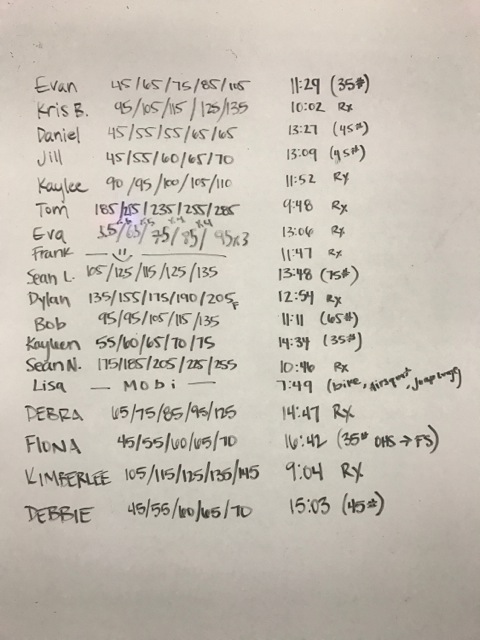 Evan 45/65/75/85/105 11:29 (35#)
Kris B. 95/105/115/125/135 10:02 Rx
Daniel 45/55/55/65/65 13:27 (45#)
Jill 45/55/60/65/70 13:09 (45#)
Kaylee 90/95/100/105/110 11:52 Rx
Tom 185/215/235/255/285 9:48 Rx
Eva 35/65/75/85/95x3 13:06 Rx
Frank 11:47 Rx
Sean L. 105/125/115/125/135 13:48 (75#)
Dylan 135/155/175/190/205F 12:54 Rx
Bob 95/95/105/115/135 11:11 (65#)
Kayleen 55/60/65/70/75 14:34 (35#)
Sean N. 175/185/205/225/255 10:46 Rx
Lisa — Mobi — 7:49 (bike, airsquat, jump lunge)
DEBRA 65/75/85/95/125 14:47 Rx
FIONA 45/55/60/65/70 16:42 (35# OHS → FS)
KIMBERLEE 105/115/125/135/145 9:04 RX
DEBBIE 45/55/60/65/70 15:03 (45#)